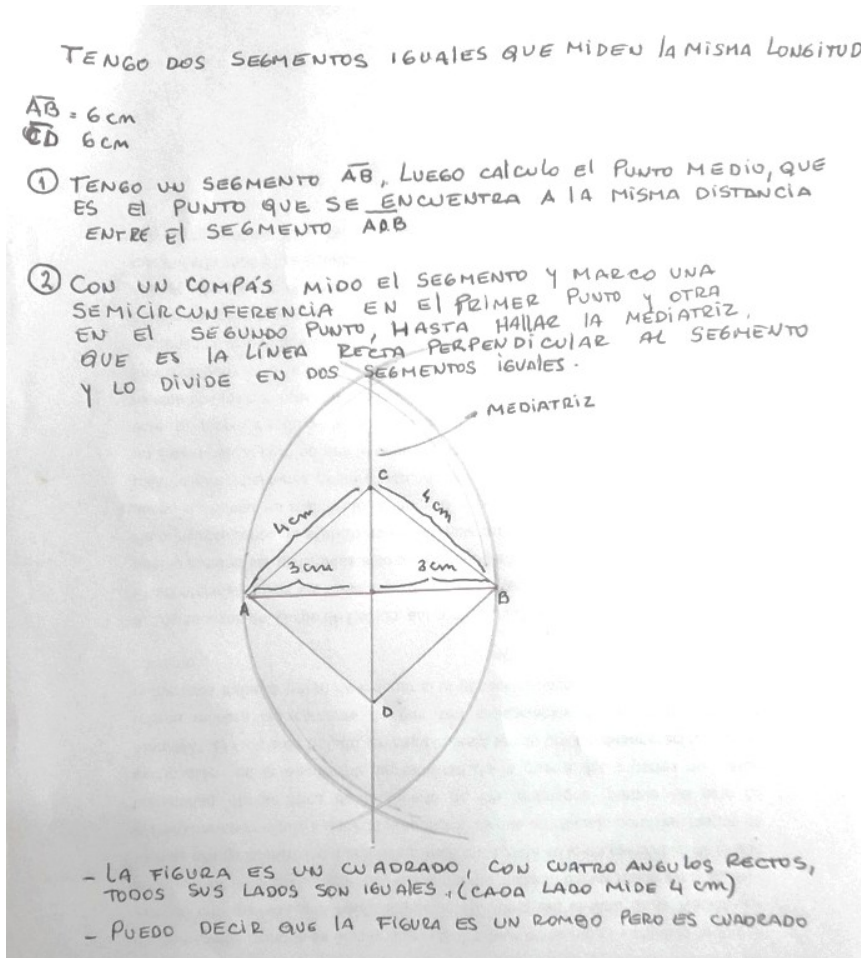 TENGO DOS SEGMENTOS IGUALES QUE MIDEN LA MISMA LONGITUD
AB = 6 cm
CD 6 cm
① TENGO UN SEGMENTO AB, LUEGO CALCULO EL PUNTO MEDIO, QUE
ES EL PUNTO QUE SE ENCUENTRA A LA MISMA DISTANCIA
ENTRE EL SEGMENTO
② CON UN COMPÁS MIDO EL SEGMENTO Y MARCO UNA
SEMICIRCUNFERENCIA EN EL PRIMER PUNTO Y OTRA
EN EL SEGUNDO PUNTO, HASTA HALLAR LA MEDIATRIZ.
QUE ES LA LÍNEA RECTA PERPENDICULAR AL SEGMENTO
Y LO DIVIDE EN DOS SEGMENTOS IGUALES.
MEDIATRIZ
C
4 cm 4 cm
3 cm 3 cm
A B
D
- LA FIGURA ES UN CUADRADO, CON CUATRO ANGULOS RECTOS,
TODOS SUS LADOS SON IGUALES. (CADA LADO MIDE 4 cm)
- PUEDO DECIR QUE LA FIGURA ES UN ROMBO PERO ES CUADRADO